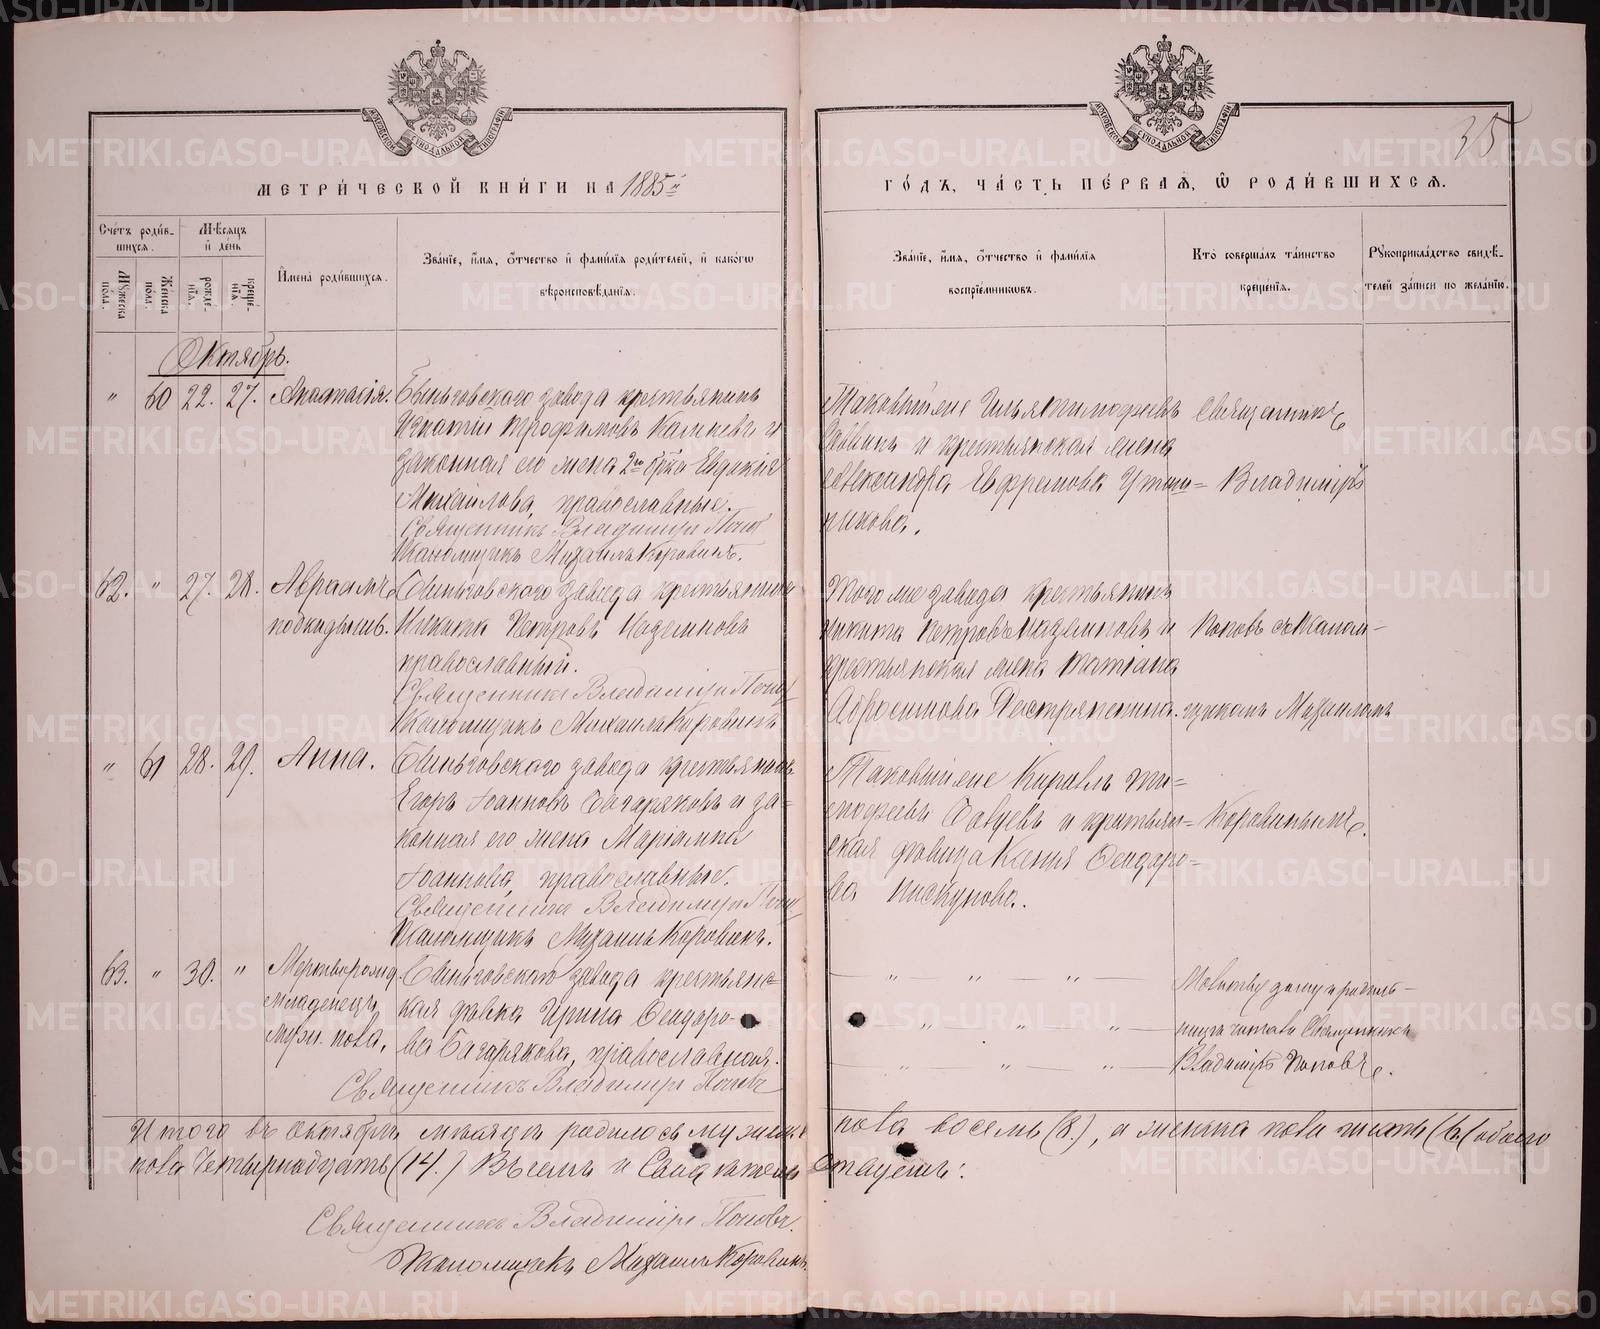 МЕТРИ́ЧЕСКОЙ КНИ́ГИ НА 1885й
ГО́ДЪ, ЧА́СТЬ ПЕ́РВАѦ, Ѡ РОДИ́ВШИХСѦ.
35
Сче́тъ роди́в-
шихсѧ.
Мѣ́сѧцъ
и́ де́нь
Мꙋ́жеска по́ла.
Же́нска по́ла.
рожде́нїѧ.
креще́нїѧ.
И́мена̀ роди́вшихсѧ.
Зва́нїе, и́мѧ, ѻ́тчество и́ фами́лїѧ роди́телей, и́ како́гѡ
вѣроисповѣ́данїѧ.
Зва́нїе, и́мѧ, ѻ́тчество и́ фами́лїѧ
воспрїе́мниковъ.
Кто̀ соверша́лъ та́инство
креще́нїѧ.
Рꙋкоприкла́дство свидѣ́-
телей за́писи по жела́нїю.
Октябрь.
" 60 22. 27. Анастасія.
Быньговскаго завода крестьянинъ
Игнатій Трофимовъ и
законная его жена 2го брка Евдокія
Михайлова, православные.
Священникъ Владимиръ Попов
Псаломщикъ Михаилъ Коровинъ.
Таковыйже Илья Тимофеевъ
Саввинъ и крестьянская жена
Александра Ефремова
Священникъ
Владиміръ
62. " 27. 28. Авраамъ
подкидышъ.
Быньговскаго завода крестьянинъ
Никита Петровъ
православный.
Священникъ Владимиръ Попов
Псаломщикъ Михаилъ Коровинъ
Тогоже завода крестьянинъ
Никита Петровъ и
крестьянская жена Татіана
Абросимова
Поповъ съ Псалом-
щикомъ Михаиломъ
" 61 28. 29. Анна.
Быньговскаго завода крестьянинъ
Егоръ Іоанновъ Багаряковъ и за-
конная его жена
Іоаннова, православные.
Священникъ Владимиръ Попов
Псаломщикъ Михаилъ Коровинъ.
Таковыйже Кириллъ Ти-
мофеевъ и крестьян-
ская девица Ксенія Феодоро-
ва Пискунова.
Коровинымъ.
63. " 30. " Мертворожд.
младенецъ
муж. пола,
Быньговскаго завода крестьянс-
кая девка Ирина Феодоро-
ва Багарякова, православная.
Священникъ Владимиръ Поповъ
" " "
" " "
" " "
Молитву дому и родиль-
ницѣ читалъ Священникъ
Владиміръ Поповъ.
Итого въ октябрѣ мѣсяцѣ родилось мужска пола восемь (8.), а женска пола шесть (6.) обоего
пола четырнадцать (14.) Въ чемъ и Свидѣтель ствуемъ:
Священникъ Владиміръ Поповъ.
Псаломщикъ Михаилъ Коровинъ.
METRIKI.GASO-URAL.RU